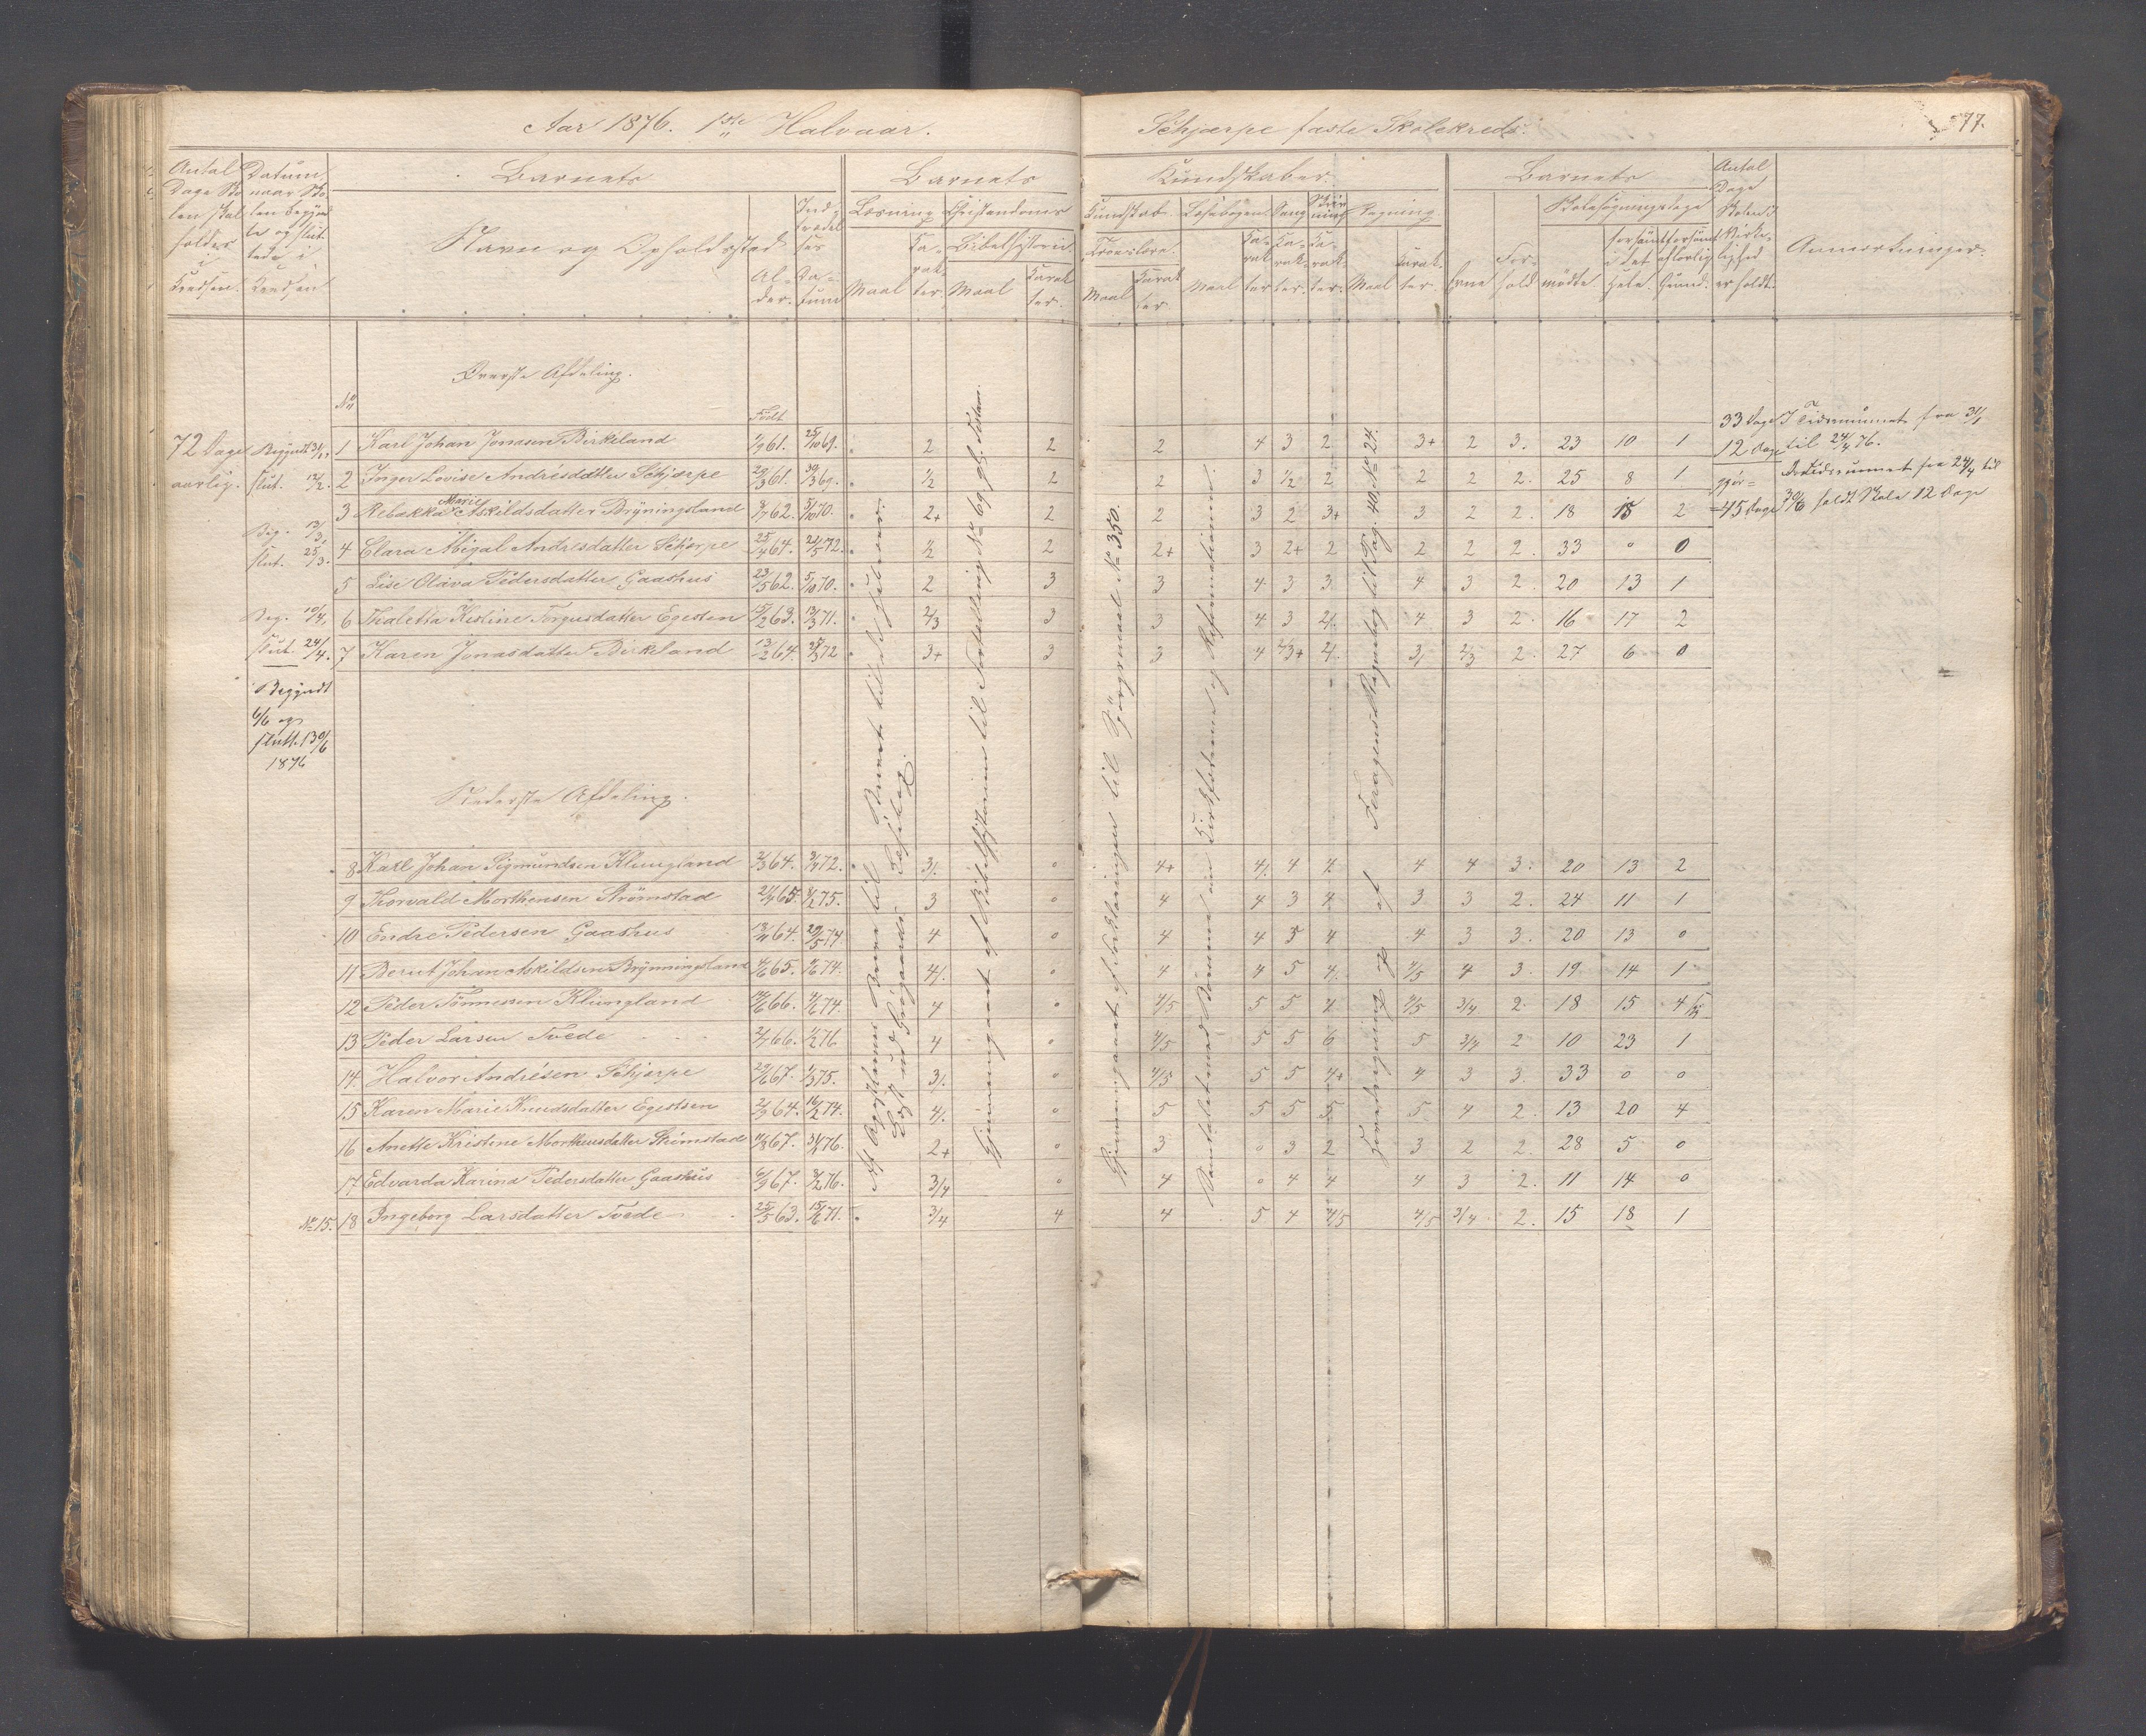 Aar 1876. 1ste Halvaar.
Schjærpe faste Skolekreds.
77.
Antal Dage Skolen skal holdes i Kredsen.
Datum naar Skolen begyndte og sluttede i Kredsen
Barnets
Navn og Opholdssted
Alder.
Indtrædelses Datum
Barnets
Læsning
Maal
Karakter.
Christendoms
Bibelhistorie.
Maal
Karakter.
Kundskaber
Kundskab.
Troeslære.
Maal
Karakter
Læsebogen
Maal
Karakter
Sang
Karakter.
Skrivning
Karakter.
Regning
Maal
Karakter.
Barnets
Evne
Forhold
Skolesøgningsdage
mødte
forsømt i det Hele.
forsømt af lovlig Grund.
Antal Dage Skolen i Virkelighed er holdt.
Anmærkninger.
Øverste Afdeling.
No
Født
72 Dage aarlig.
Begyndt 31/1, slut. 12/2.
Beg. 13/3, slut. 25/3.
Beg. 10/4, slut. 24/4.
Begyndt 6/6 og slutt. 30/6 1876
1 Karl Johan Jonasen Birkeland 7/9 61. 25/10 69. 2 2 2 4 3 2 3+ 2 3. 23 10 1
2 Inger Lovise Andrésdatter Schjærpe 29/3 61. 30/3 69. 1/2 2 2 3 1/2 2 2 2 2. 25 8 1
3 Rebækka Marie Askildsdatter Bryningsland 8/7 62. 5/10 70. 2+ 2 2 3 2 3+ 3 2 2. 18 15 2
4 Clara Abigal Andrésdatter Schjærpe 25/4 64. 24/5 72. 1/2 2 2+ 3 2+ 2 2 2 2. 33 0 0
5 Lise Olava Pedersdatter Gaashus 23/5 62. 5/10 70. 2 3 3 4 3 3 4 3 2. 20 13 1
6 Thaletta Kistine Torgusdatter Egesten 15/2 63. 13/3 71. 2/3 3 3 4 3 4. 4 3 2. 16 17 2
7 Karen Jonasdatter Birkeland 13/2 64. 25/3 72 3+ 3 3 4 2/3+ 4. 3 2/3 2. 27 6 0
33 Dage I Tidsrummet fra 31/1 til 24/4 76.
12 Dage I Tidsrummet fra 24/4 til 30/6 holdt Skole 12 Dage
gjør =
=45 Dage
Nederste Afdeling.
8 Karl Johan Sigmundsen Klungland 2/3 64. 3/4 72. 3/. 0 4+ 4. 4 4 4 4 3. 20 13 2
9 Torvald Morthensen Strømstad 24/4 65. 1/2 75. 3 0 4 4 3 4 3 3 2. 24 11 1
10 Endre Pedersen Gaashus 13/4 64. 29/5 74. 4 0 4 4 5 4 4 3 3. 20 13 0
11 Berut Johan Askildsen Brynningsland 4/6 65. 1/6 74. 4/. 0 4 4 5 4. 4/5 4 3. 19 14 1
12 Peder Tønnessen Klungland 14/6 66. 4/2 74. 4 0 4/5 5 5 4 4/5 3/4 2. 18 15 4
13 Peder Larsen Tvede 2/7 66. 1/2 76 4 0 4/5 5 5 6 5 3/4 2 10 23 1
14. Halvor Andrésen Schjærpe 29/6 67. 1/3 75. 3/. 0 4/5 5 5 4+ 4 3 3. 33 0 0
15 Karen Marie Knudsdatter Egesten 2/3 64. 16/2 74. 4/. 0 5 5 5 5 5 4 2. 13 20 4
16 Anette Kristine Morthensdatter Strømstad 11/3 67. 31/1 76. 2+ 0 3 0 3 2 3 2 2. 28 5 0
17 Edvarda Karina Pedersdatter Gaashus 6/9 67. 8/2 76. 3/4 0 4 0 4 4 4 3 2. 11 14 0
No 15. 18 Ingeborg Larsdatter Tvede 25/5 63. 15/6 71. 3/4 4 4 5 4 4/5 4/5 3/4 2. 15 18 1
Gjennemgaaet af Bibelhistorien til Fortælling No 69, gl. Testam.
Gjennemgaaet af Forklaringen til Spørgsmaal No 350.
Hovedregning og af Feragens Regnebog til Pag. 40, No 24.